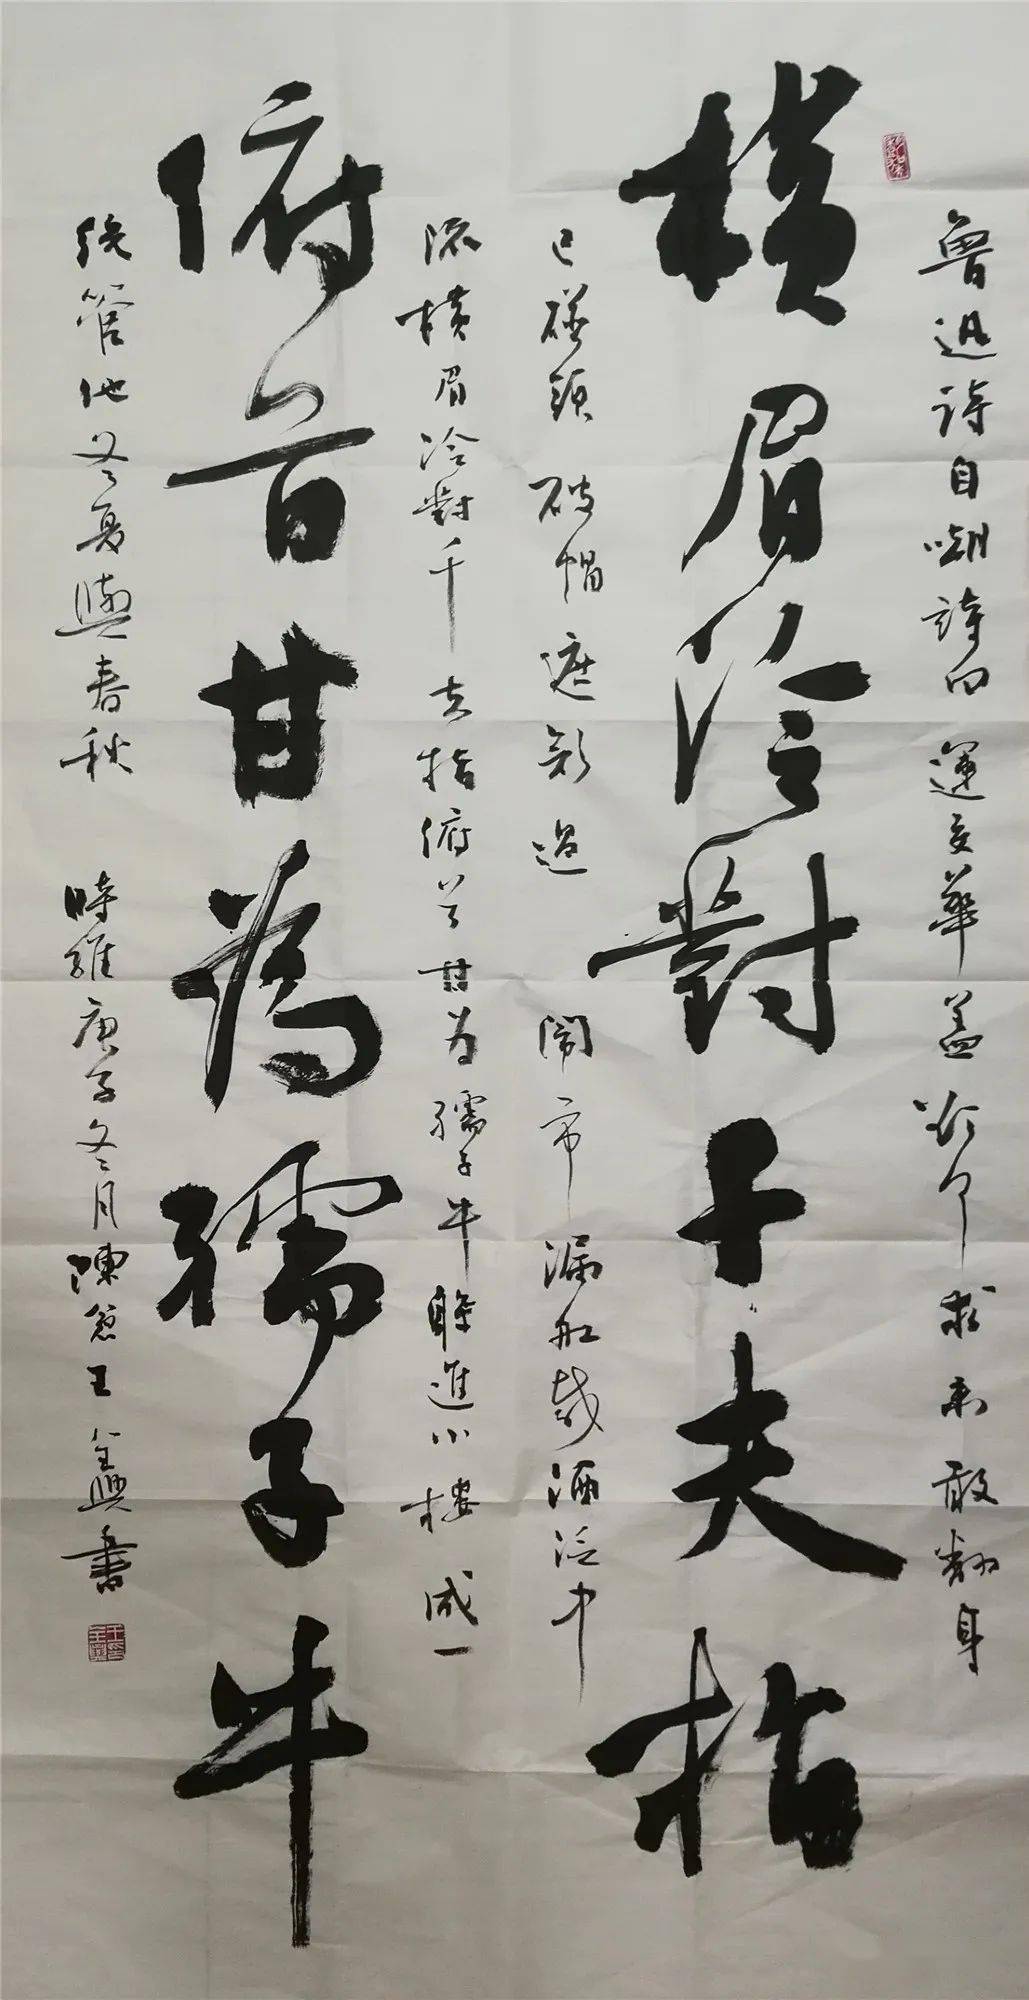 魯迅詩自嘲詩曰運交華蓋欲何求未敢翻身
橫眉冷對千夫指
已碰頭破帽遮顏過鬧市漏船載酒泛中
流橫眉冷對千夫指俯首甘为孺子牛躲進小樓成一
俯首甘為孺子牛
統管他冬夏與春秋時維庚子冬月陳忽王全興書